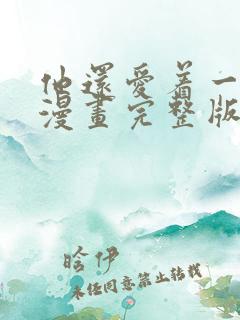 他還愛着一
漫畫完整版
晗伊
未经同意禁止转载